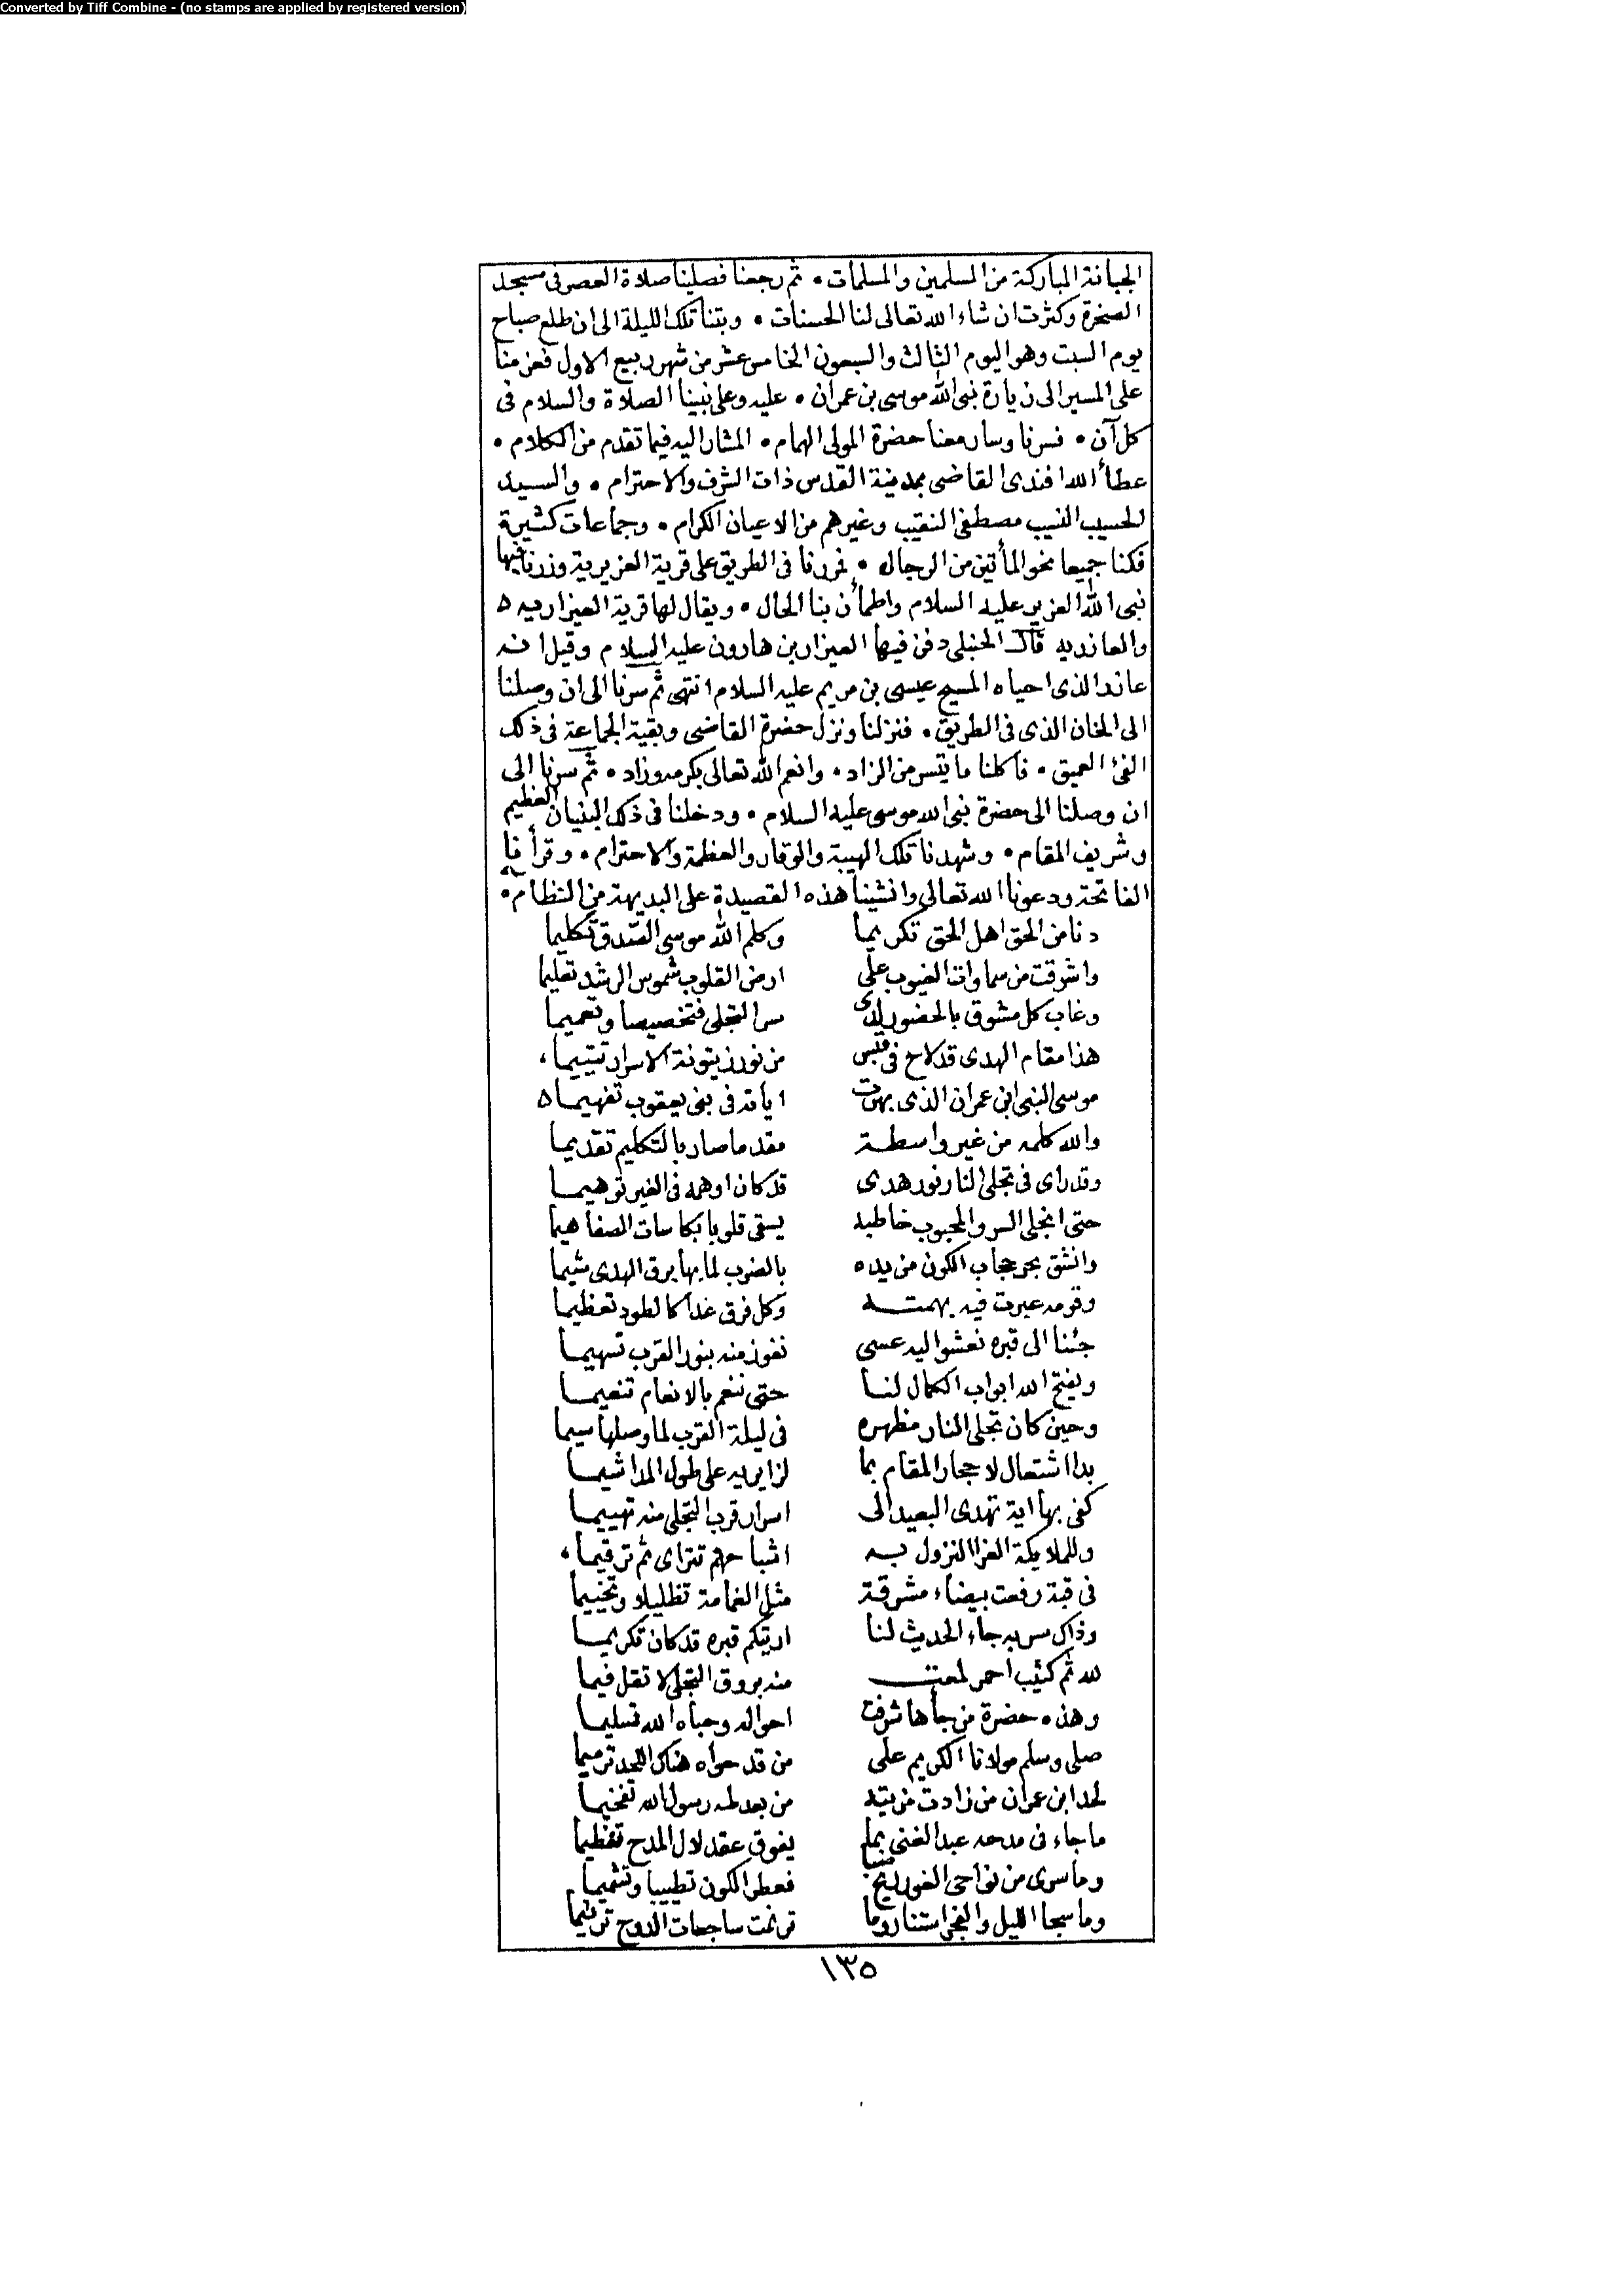 Converted by Tiff Combine - (no stamps are applied by registered version)
الجبانة المباركة من المسلمين والمسلمات • ثم رجعنا فصلينا صلاة العصر فى مسجد
الصخرة وكثرت ان شاء الله تعالى لنا الحسنات • وبتنا تلك الليلة الى ان طلع صباح
يوم السبت وهو اليوم الثالث والسبعون الخامس عشر من شهر ربيع الاول فعزمنا
على المسير الى زيارة نبى الله موسى بن عمران • عليه وعلى نبينا الصلاة والسلام فى
كل آن • فسرنا وسار معنا حضرة المولى الهمام • المشار اليه فيما تقدم من الكلام •
عطاء الله افندى القاضى بمدينة القدس ذات الشرف والاحترام • والسيد
الحسيب النسيب مصطفى النقيب وغيرهم من الاعيان الكرام • وجماعات كثيرة
فكنا جميعا نحو المأتين من الرجال • فمررنا فى الطريق على قرية العزيرية وزرنا فيها
نبى الله العزير عليه السلام واطمأن بنا الحال • ويقال لها قرية العيزاريه ه
والعازريه قال الحنبلى دفن فيها العيزار بن هارون عليه السلام وقيل انه
عازر الذى احياه المسيح عيسى بن مريم عليه السلام انتهى ثم سرنا الى ان وصلنا
الى الخان الذى فى الطريق • فنزلنا ونزل حضرة القاضى وبقية الجماعة فى ذلك
الفئ العميق • فاكلنا ما يتسر من الزاد • وانعم الله تعالى بكرمه وزاد • ثم سرنا الى
ان وصلنا الى حضرة نبى الله موسى عليه السلام • ودخلنا فى ذلك البنيان العظيم
وشريف المقام • وشهدنا تلك الهيبة والوقار والعظمة والاحترام • وقرأنا
الفاتحة ودعونا الله تعالى وانشينا هذه القصيدة على البديهة من النظام •
دنا من الحق اهل الحق تكريما وكلم الله موسى الصدق تكليما
واشرقت من سماوات الغيوب على ارض القلوب شموس الرشد تعليما
وغاب كل مشوق بالحضور لدى سر التجلى فتخصيصا وتعميما
هذا مقام الهدى قد لاح فى قبس من نور زيتونة الاسرار تتييما ،
موسى النبى ابن عمران الذى بهرت اياته فى بنى يعقوب تفهيما ه
والله كلمه من غير واسطة مقدما صار بالتكليم تقديما
وقد راى فى تجلى النار نور هدى قد كان اوهمه فى الغير توهيما
حتى انجلى السر والمحبوب خاطبه يسقى قلوبا بكاسات الصفا هيما
وانشق بحر حجاب الكون من يده بالضرب لما بها برق الهدى شيما
وقومه عبرت فيه بهمته وكل فرق غدا كالطود تعظيما
جئنا الى قبره نعشو اليه عسى نفوز منه بنور القرب تسهيما
ويفتح الله ابواب الكمال لنا حتى ننعم بالانعام تنعيما
وحين كان تجلى النار مظهره فى ليلة القرب لما وصلها سيما
بدا اشتعال لاحجار المقام بما لزايريه على طول المدا شيما
كفى بها اية تهدى البعيد الى اسرار قرب التجلى منه تهييما
وللملايكة الغرا النزول به اشباحهم تتراى ثم ترقيما ،
فى قبة رفعت بيضاء مشرقة مثل الغمامة تظليلا وتخييما
وذاك سر به جاء الحديث لنا اريتكم قبره قد كان تكريما
لله ثم كثيب احمر لمعت منه بروق التجلى لا تقل فيما
وهذه حضرة من جأها شرفت احواله وحباه الله تسليما
صلى وسلم مولانا الكريم على من قد حواه هناك اللحد ترميما
لحد ابن عمران من زادت مزيته من بعد طه رسول الله تفخيما
ما جاء فى مدحه عبد الغنى بما يفوق عقد لال المدح تنظيما
وما سرى من نواحى الغور ريح صبا فعطر الكون تطييبا وتشميما
وما سجا الليل والفجر استنار وما ترنمت ساجعات الدوح ترنيما
١٣٥